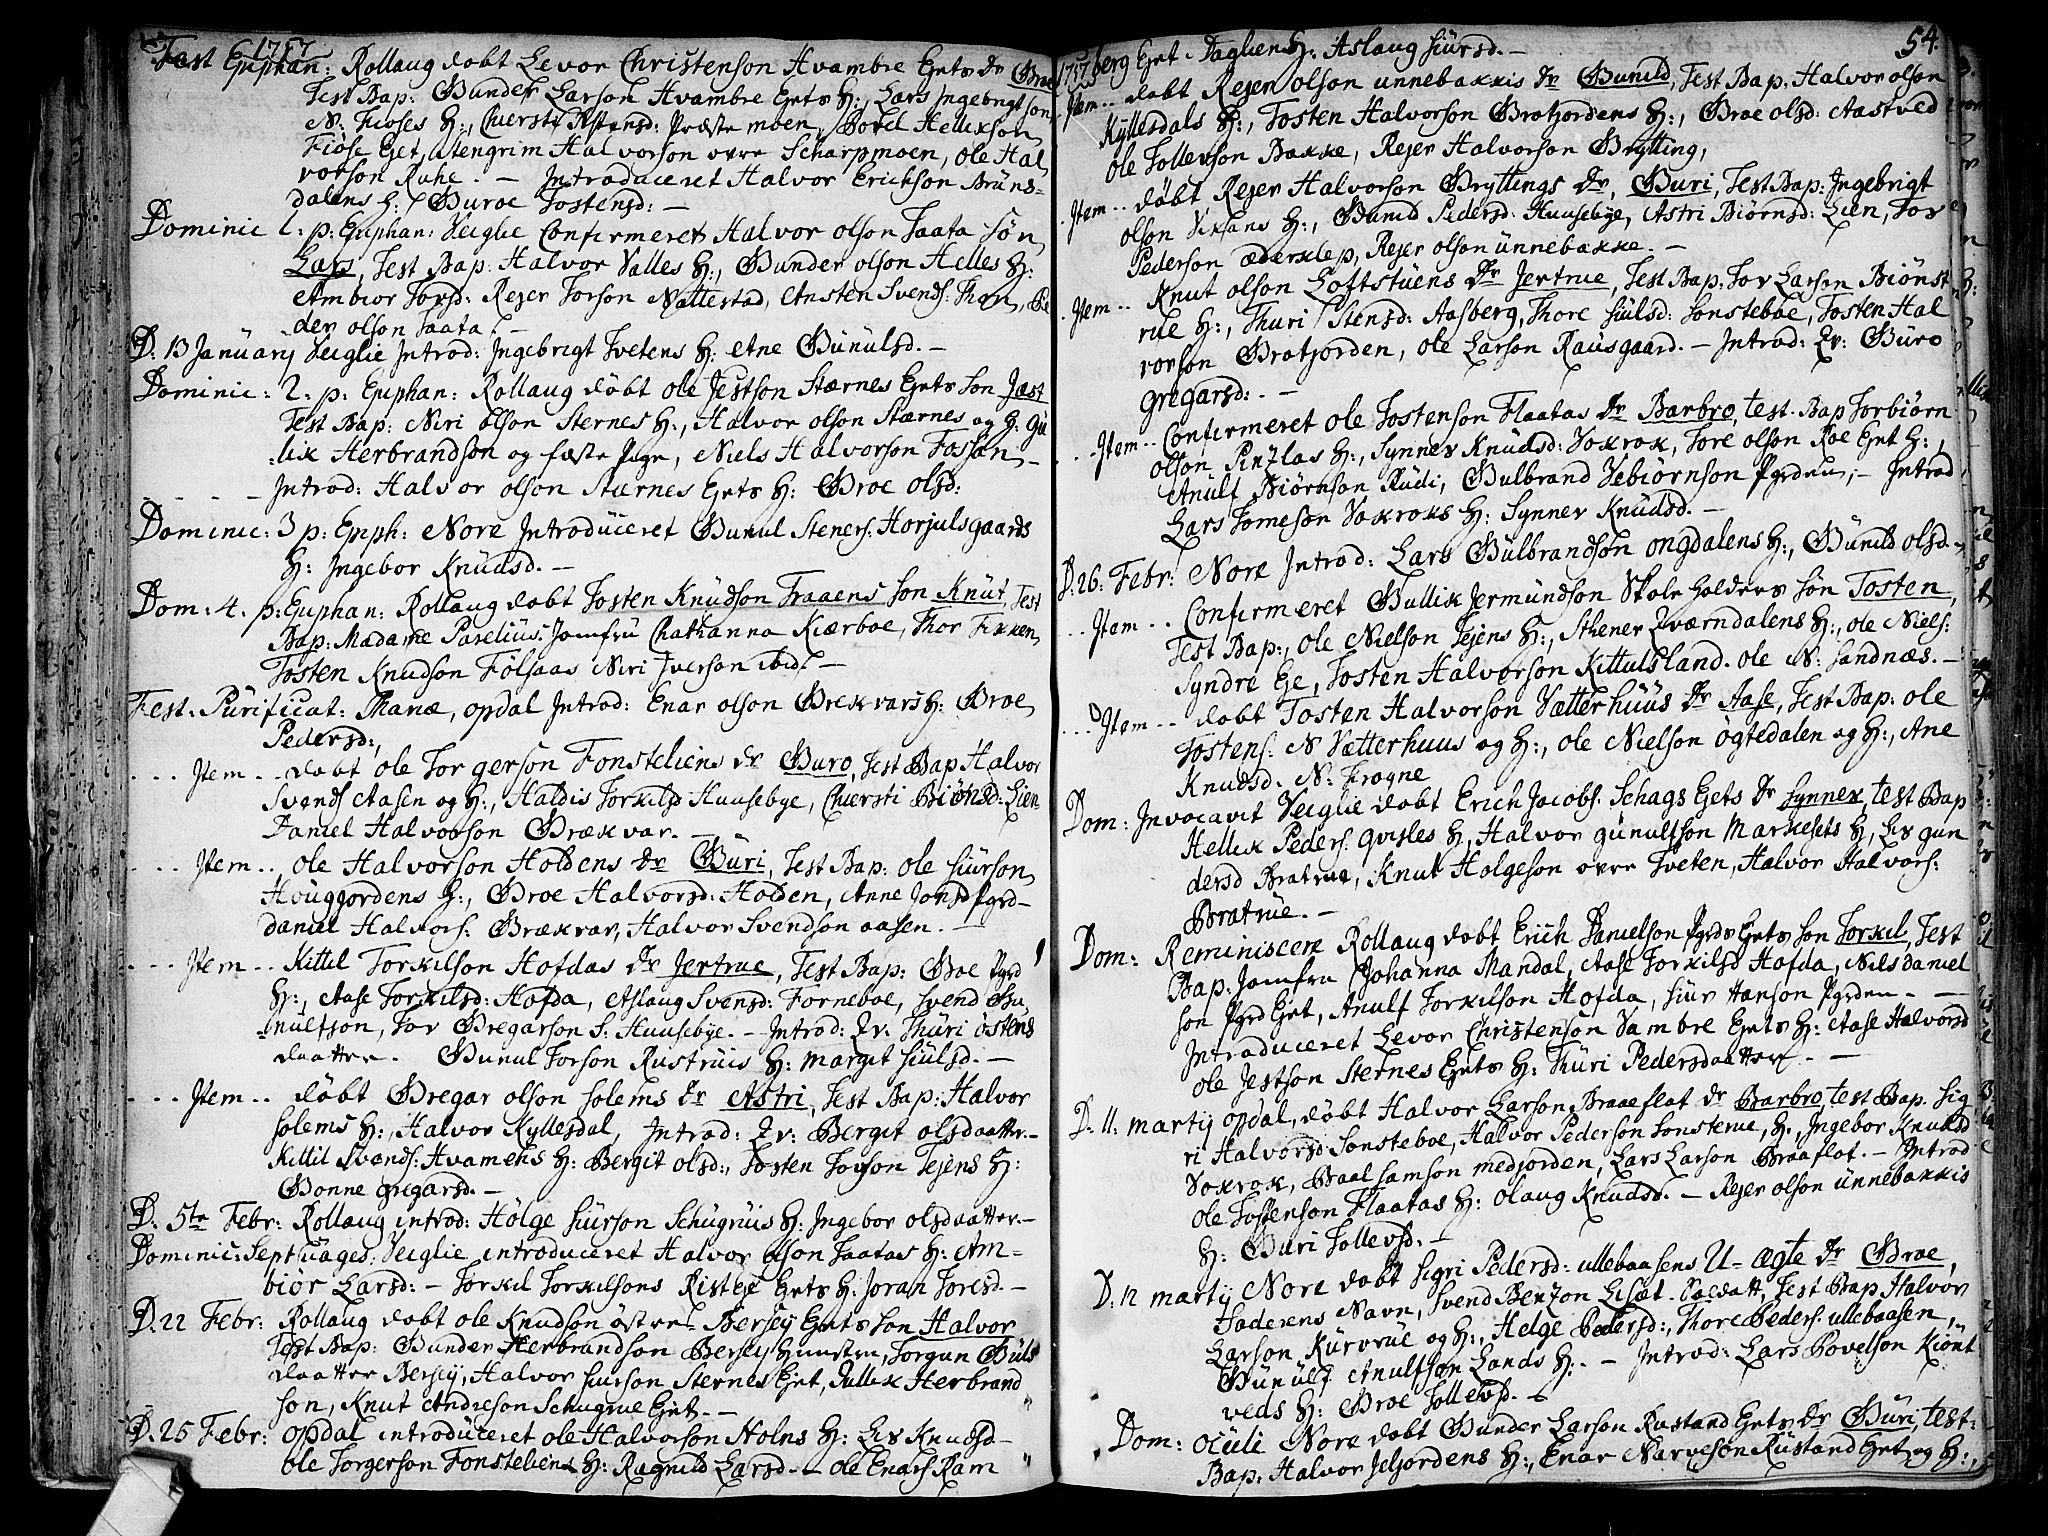 1757
Fest Epiphan: Rollaug dobt Levor Christenson Hvambre Eiets dr Groe
Test Bap: Gunder Larson Hvambre Eiets H:, Lars Ingebrigtson
N: Fioses H:, Chiersti Astensd: Præstemoen, Bovel Hellikson
Fiose Eiet, Stengrim Halvorson øvre Scharpmoen, ole Hal
vorson Ruhe. — Introduceret Halvor Erickson Brüns-
dalens H: Guroe Tostensd: —
Dominic 1. p: Epiphan: Veiglie Confirmeret Halvor olson Taata søn
Lars, Test Bap: Halvor Valles H:, Gunder olson Helles H:
Ambior Torsd: Rejer Torson Nattestad, Ansten Svends: Thon, Pe
der olson Taata. —
D. 13 January Veiglie Introd: Ingebrigt Tvetens H: Ane Gunulsd. —
Dominic: 2. p: Epiphan: Rollaug døbt ole Jestson Stærnes Eiets søn Jæst
Test Bap: Niri olson Sternes H:, Halvor olson Stærnes og H: Gu
lik Herbrandson og fæste Pige, Niels Halvorson Fossan —
- - - - Introd: Halvor olson Stærnes Eiets H: Groe olsd:
Dominic: 3 p: Epph: Nore Introduceret Gunul Steners: Horjulsgaards
H: Ingebor Knudsd. —
Dom: 4. p: Epiphan: Rollaug døbt Tosten Knudson Traaens søn Knut, Test
Bap: Madame Paselius: Jomfru Chathanna Kiærboe, Thor Fikken,
Tosten Knudson Folsaas Niri Iverson ibid. —
Fest: Purificat: Mariæ, opdal Introd: Enar olson Brekvars H: Groe
Pedersd:,
. . . Item .. døbt ole Torgerson Fonsteliens dr Guro, Test Bap Halvor
Svends Aasen og H:, Haldis Torkilsd Huusebye, Chiersti Biönsd: Lien
Daniel Halvorson Brækvar. —
. . . Item .. ole Halvorson Holdens dr Guri, Test Bap: ole Siurson
Hougjordens H:, Groe Halvorsd: Holden, Anne Jonsd Pgrd —
daniel Halvors: Brækvar, Halvor Svendson aasen. —
. . . Item .. Kittil Torkilson Hofdas dr Jertrue, Test Bap: Groe Pgrd
H:, Aase Torkilsd: Hofda, Aslaug Svensd: Forneboe, Svend Gu
nulfson, Tor Gregarson S: Huusebye. — Introd: Qv: Thuri östens
daatter. Gunul Torson Rustruis H: margit Siulsd. —
. . . Item .. døbt Gregar olson solems dr Astri, Test Bap: Halvor
solems H:, Halvor Kyllesdal, Introd: Qv: Bergit olsdaatter. —
Kittil Svends: Hvamens H: Bergit olsd:, Tosten Torson Tejens H:
Gonne gregarsd. —
D. 5te Febr: Rollaug introd: Holge Siurson Schugruis H: Ingebor olsdaatter. —
Dominic: Septuages: Veiglie introduceret Halvor olson Taatas H: Am-
biör Larsd: — Torkil Torkilsons Ristey Eiets H: Joran Toresd. —
D. 22 Febr: Rollaug døbt ole Knudson östre Bersey Eiets søn Halvor
Test Bap: Gunder Herbrandson Bersey Huustru, Torgun Guls
daatter Bersey, Halvor Siurson Sternes Eiet, Gullik Herbrand
son, Knut Andreson Schugrue Eiet. —
D. 25 Febr: opdal introduceret ole Halvorson Holns H: Liv Knudsd —
ole Torgerson Fonsteliens H: Ragnild Larsd. — ole Enars Ram
54.
1757 berg Eiet Dagliens H: Aslaug Siursd. —
. Item .. døbt Rejer olson unnebakkis dr Gunild, Test Bap: Halvor olson
Kyllesdals H:, Tosten Halvorson Bratjordens H:, Groe olsd: Aastved
ole Tollevson Bakke, Rejer Halvorson Brytting,
. Item .. døbt Rejer Halvorson Bryttings dr, Guri, Test Bap: Ingebrigt
olson Viksans H:, Gunild Pedersd: Huusebye, Astri Biørnsd: Lien, Tor
Pederson æderklep, Rejer olson unnebakke. —
. Item .. Knut olson Loftstuens dr Jertrue, Test Bap: Tor Larson Biönst
rue H:, Thuri Stensd: Aasberg, Thore Siulsd: Sonsteboe, Tosten Hal
vorson Bratjorden, ole Larson Rausgaard. — Introd: Qv: Guro
gregarsd: . —
. . Item .. Confirmeret ole Tostenson Flaatas dr Barbro, test. Bap Torbiørn
olson Pintlas H:, Synnev Knudsd: Vokrok, Tore olson Roe Eiet H:,
Anulf Biörnson Rudi, Gulbrand Vebiörnson Pgrden, — Introd
Lars Tomeson Vokroks H: Synnev Knudsd. —
D. 26. Febr: Nore Introd: Lars Gulbrandson ongdalens H:, Gunild olsd. —
. . . Item .. Confirmeret Gullik Jermundson Skoleholders søn Tosten,
Test Bap:, ole Nielson Tejens H:, Sthener Qværndalens H:, ole Niels:
Syndre Eie, Tosten Halvorson Kittulsland. ole N: Sandnæs. —
. . . Item .. døbt Tosten Halvorson Vætterhuus dr Aase, Test Bap: ole
Tostens: N Vætterhuus og H:, ole Nielson ögtedalen og H:, Ane
Knudsd. N: Frogne
Dom: Invocavit Veiglie døbt Erich Jacobs. Schags Eiets dr Synnev, test Bap
Hellik Peders: qvisles H, Halvor gunulfson Markesets H, Liv gun
dersd Bratrue, Knut Holgeson øvre Tveten, Halvor Halvors:
Bratrue. —
Dom: Reminiscere Rollaug døbt Erich Danielson Pgrds Eiets søn Torkil, Test
Bap: Jomfru Johanna Mandal, Aase Torkilsd Hofda, Nils daniel
son Pgrd Eiet, Anulf Torkilson Hofda, Siur Hanson Pgrden. —
Introduceret Levor Christenson Vambre Eiets H: Aase Halvorsd
ole Jestson Sternes Eiets H: Thuri Pedersdaatter. —
D. 11. martij opdal, døbt Halvor Larson Braaeflat dr Barbro, test Bap. Sig
ri Halvorsd Sonsteboe, Halvor Pederson Sonsterue, H, Ingebor Knutsd
Vokrok, Baal Samson medjorden, Lars Larson Braaflot. — Introd
ole Tostenson Flaatas H: olaug Knudsd. — Rejer olson unnebakkis
H: Guri Tollevsd. —
D. 12 martij Nore døbt Sigri Pedersd: ullebaasens U-ægte dr Groe,
Faderens Navn, Svend Bentzon Soldatt, Test Bap Halvor
Larson Kurvrue og H:, Helge Pedersd:, Thore Peders: ullebaasen,
Gunulf Anulfson Lands H:. — Introd: Lars Povelson Kiönt
veds H: Groe Tollevsd. —
Dom: Oculi Nore døbt Gunder Larson Rustand Eiets dr Guri, test.
Bap: Halvor Jeljordens H:, Enar Narveson Rustand Eiet og H:,